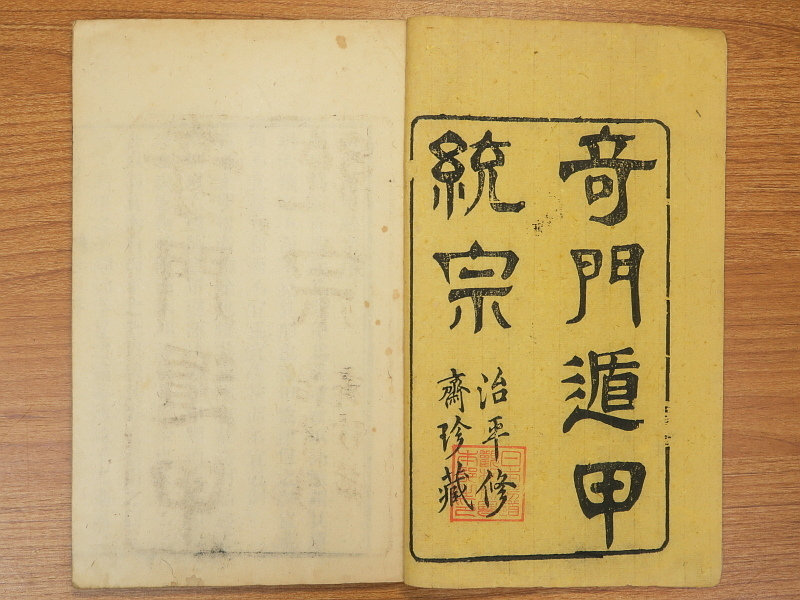 奇門遁甲
統宗
治平修
齋珍藏